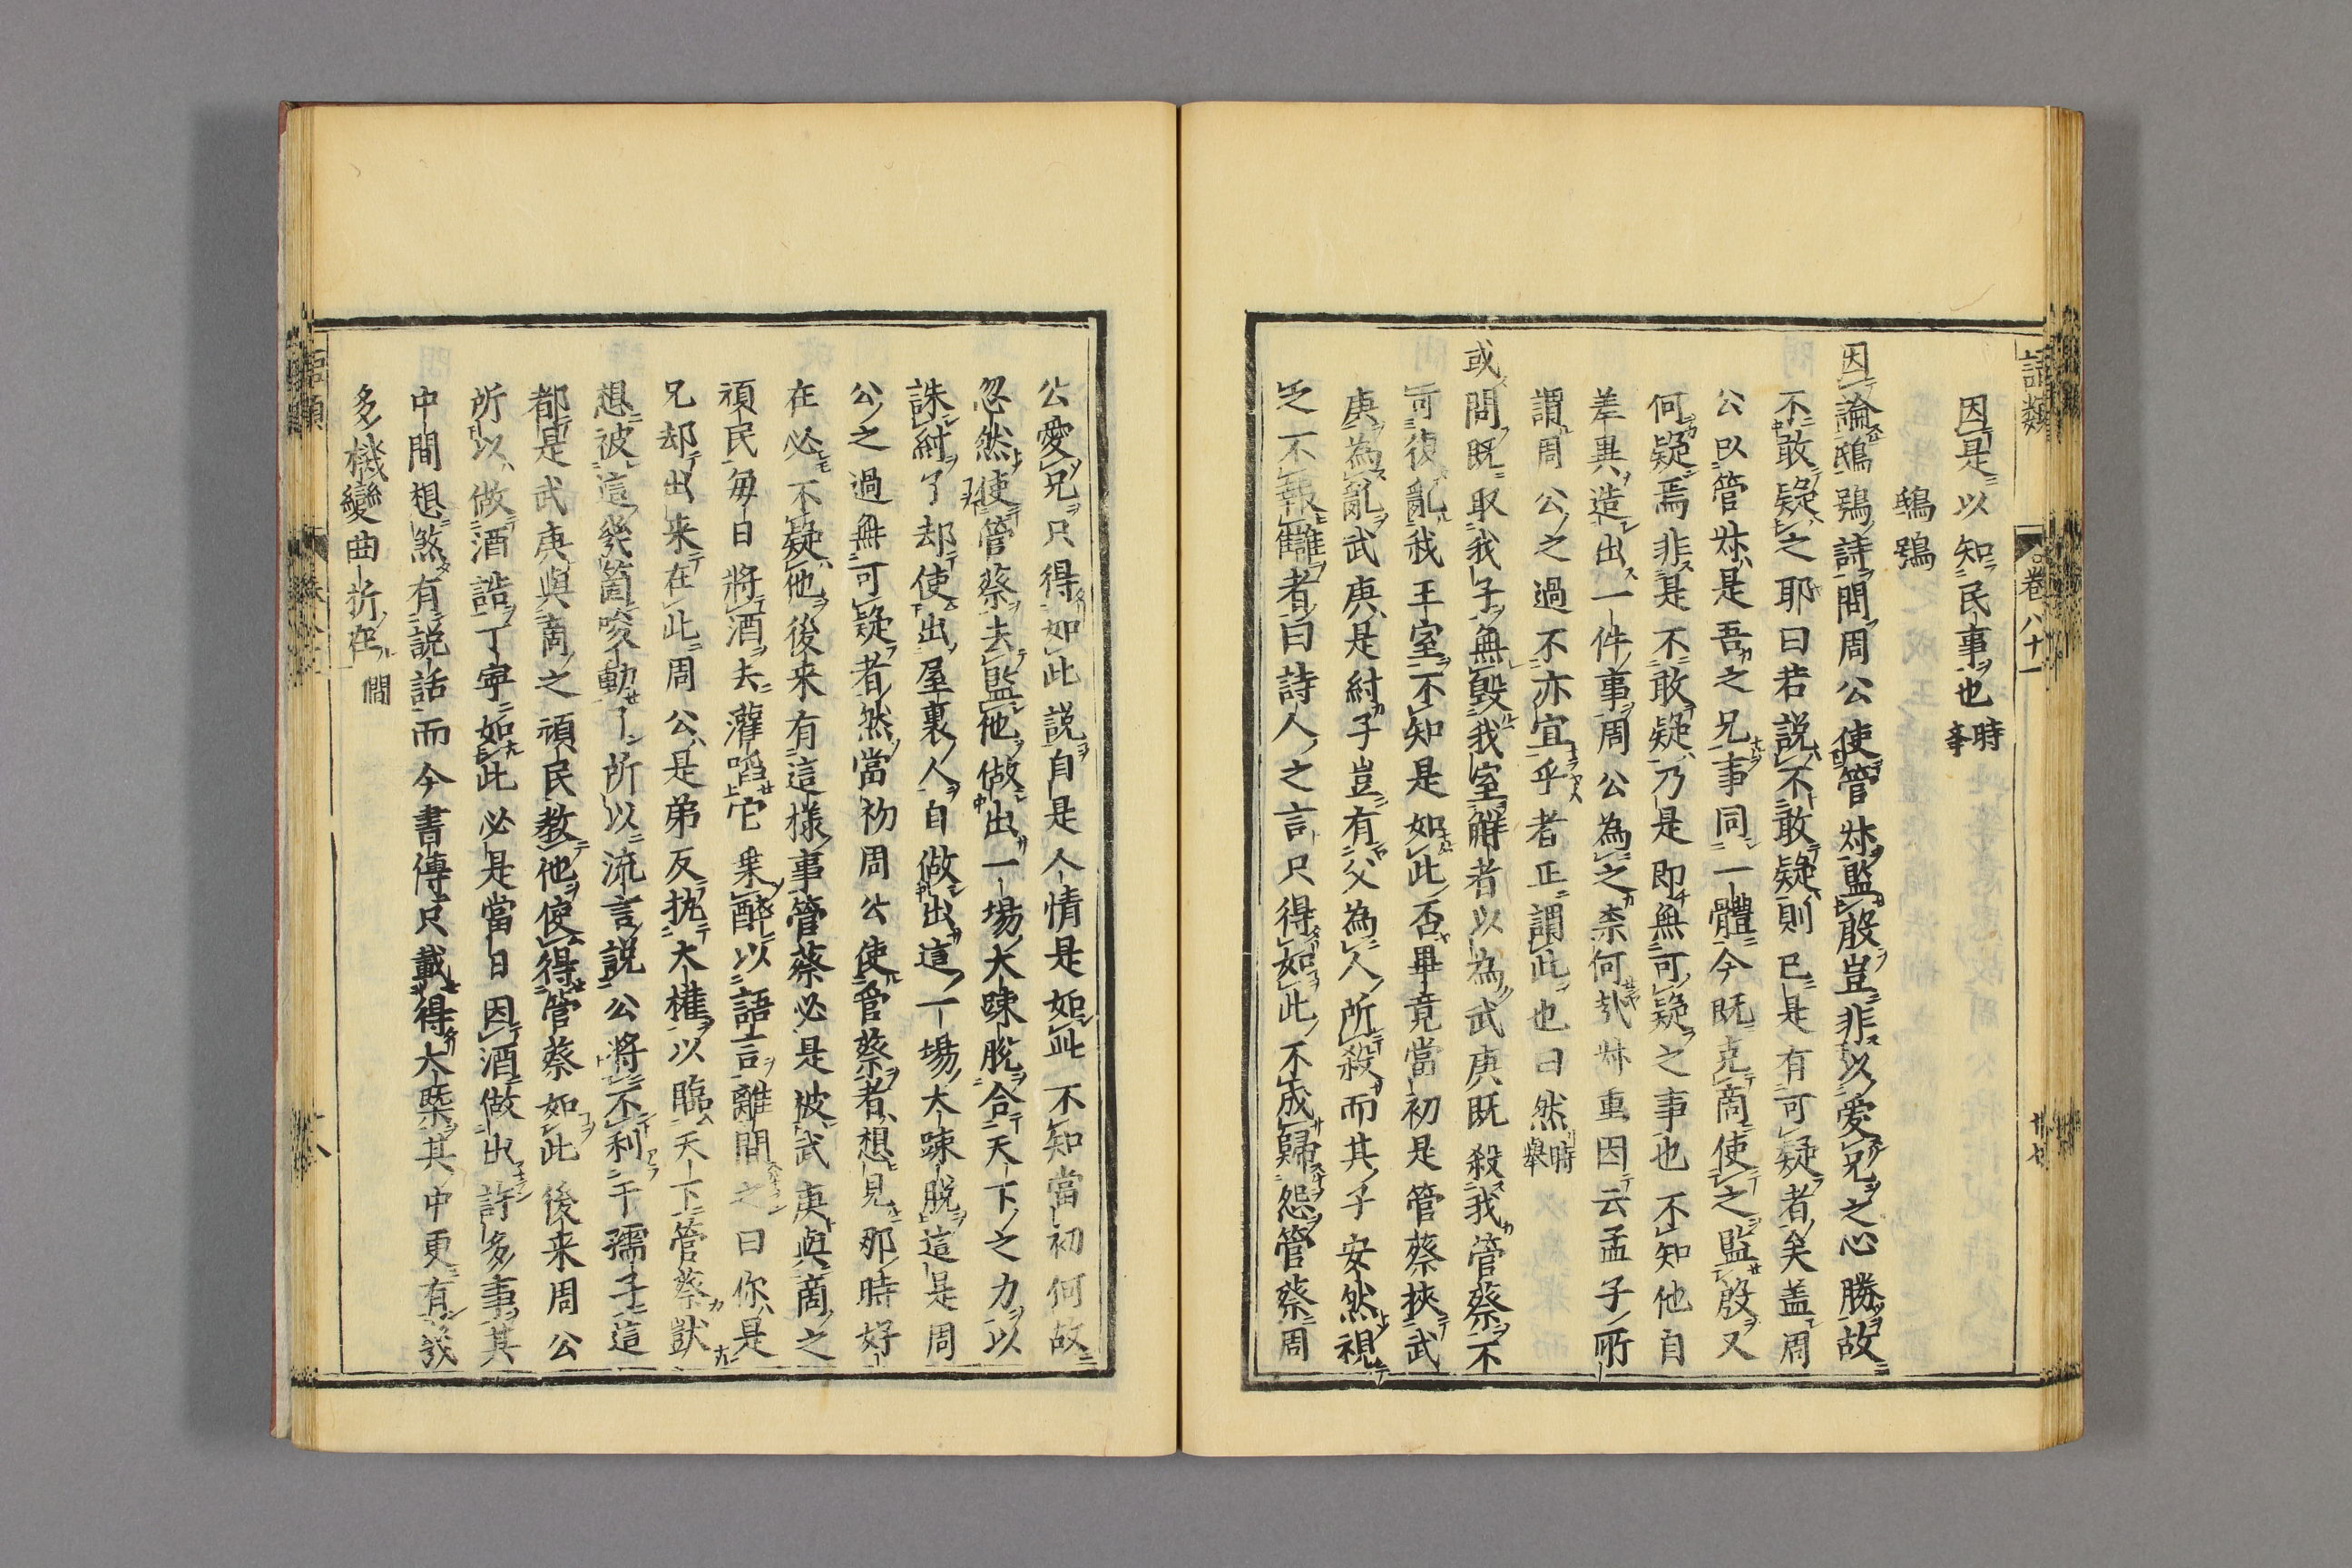 語類
卷八十一
廿七
因是以知民事也時舉
鴟鴞
因論鴟鴞詩問周公使管叔監殷豈非以愛兄之心勝故
不敢疑之耶曰若說不敢疑則已是有可疑者矣盖周
公以管叔是吾之兄事同一體今既克商使之監殷又
何疑焉非是不敢疑乃是即無可疑之事也不知他自
差異造出一件事周公為之柰何哉叔重因云孟子所
謂周公之過不亦宜乎者正謂此也曰然時舉
或問既取我子無毀我室解者以為武庚既殺我管蔡不
可復亂我王室不知是如此否畢竟當初是管蔡挾武
庚為亂武庚是紂子豈有父為人所殺而其子安然視
之不報讎者曰詩人之言只得如此不成歸怨管蔡周
公愛兄只得如此說自是人情是如此不知當初何故
忽然使管蔡去監他做出一場大踈脫合天下之力以
誅紂了却使出屋裏人自做出這一場大踈脫這是周
公之過無可疑者然當初周公使管蔡者想見那時好
在必不疑他後来有這樣事管蔡必是被武庚與商之
頑民每日將酒去灌啗它乗醉以語言離間之曰你是
兄却出来在此周公是弟反执大權以臨天下管蔡獃
想被這幾箇唆動了所以流言說公將不利于孺子這
都是武庚與商之頑民教他使得管蔡如此後来周公
所以做酒誥丁寧如此必是當日因酒做出許多事其
中間想煞有說話而今書傳只載得大槩其中更有幾
多機變曲折在僩
語類